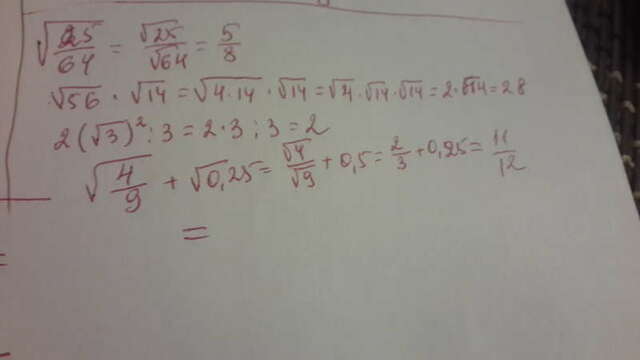 √25/64 = √25/√64 = 5/8
√56 · √14 = √4·14 · √14 = √4 · √14 · √14 = 2 · 14 = 28
2(√3)² : 3 = 2 · 3 : 3 = 2
√4/9 + √0,25 = √4/√9 + 0,5 = 2/3 + 0,25 = 11/12
=